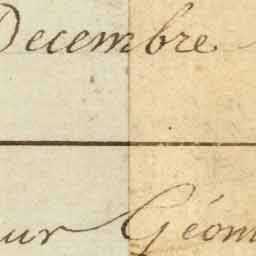 Decembre
ur Géom